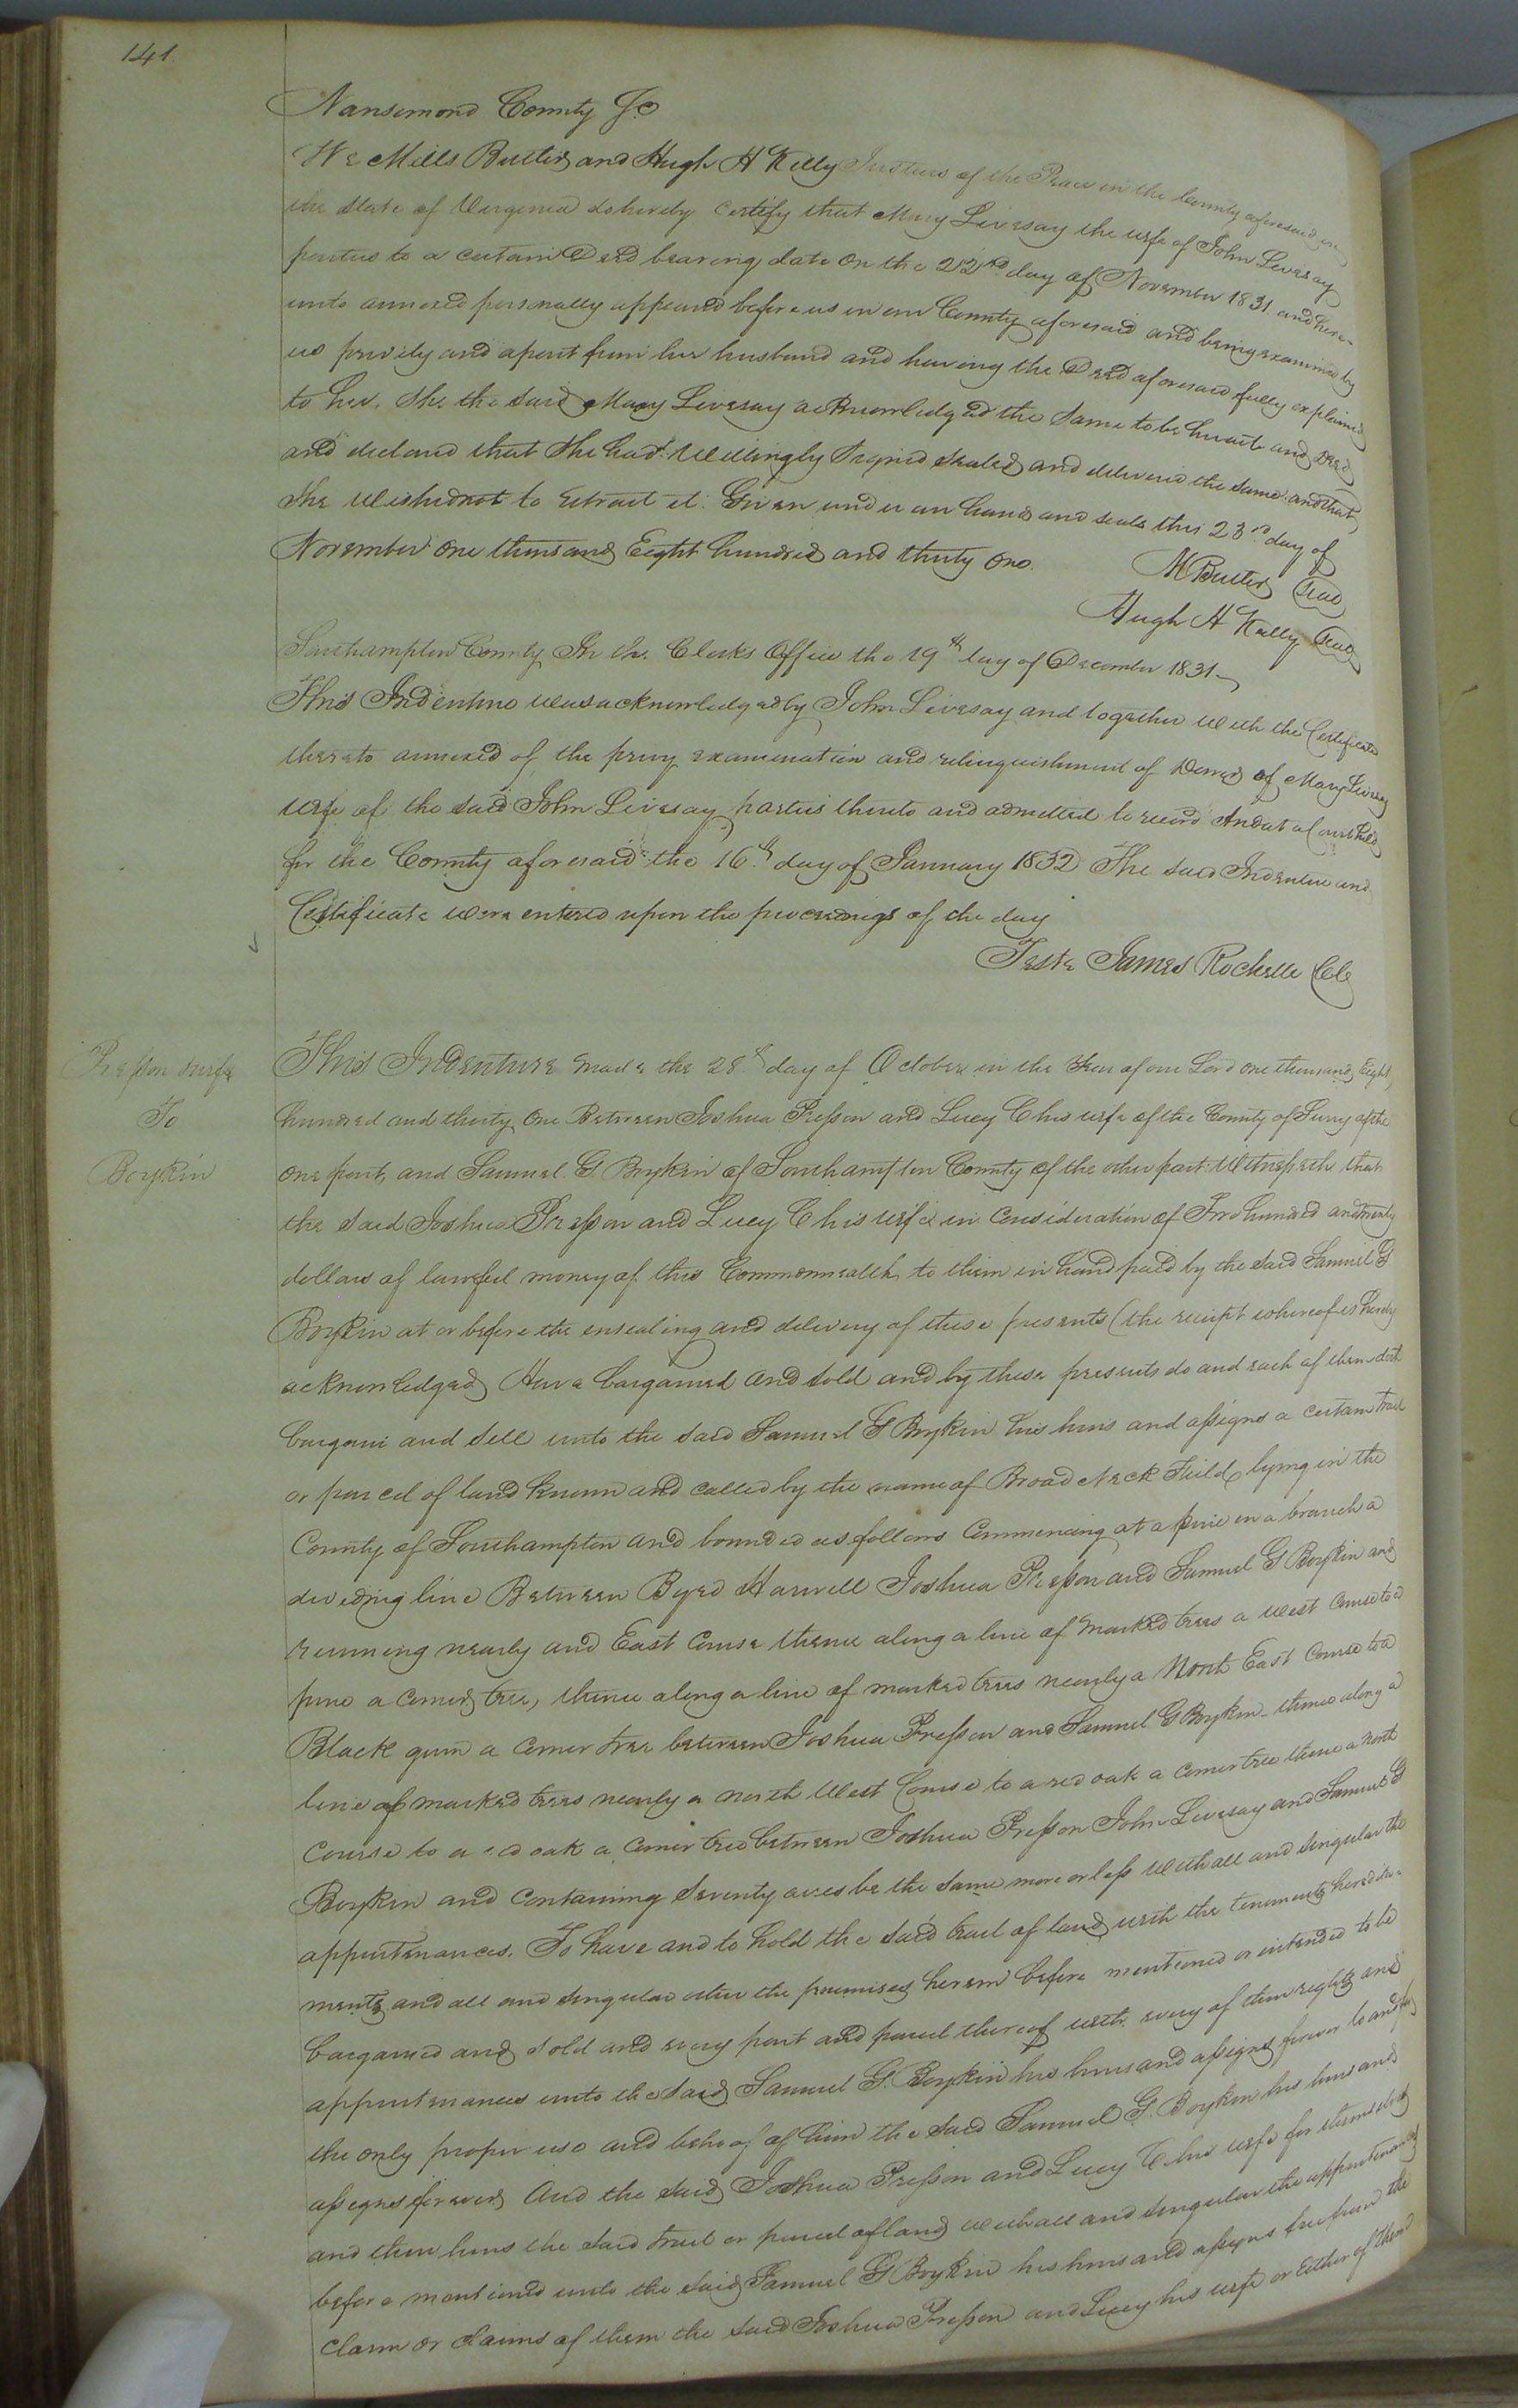 141.
Nansemond County Sc
We Mills Butler and Hugh H Kelly Justices of the Peace in the County aforesaid in
the State of Virginia do hereby certify that Mary Livesay the wife of John Livesay
parties to a certain Deed bearing date on the 22nd day of November 1831 and here-
unto annexed personally appeared before us in our County aforesaid and being examined by
us privily and apart from her husband and having the Deed aforesaid fully explained
to her. She the said Mary Livesay acknowledged the same to be her act and deed
and declared that she had willingly signed sealed and delivered the same and that
she wished not to retract it. Given under our hands and seals this 23rd day of
November one thousand Eight hundred and thirty one.
M Butler Seal
Hugh H Kelly Seal
Southampton County In the Clerks Office the 19th day of December 1831
This Indenture was acknowledged by John Livesay and together with the Certificate
thereto annexed of the privy examination and relinquishment of Dower of Mary Livesay
wife of the said John Livesay parties thereto and admitted to record And at a Court held
for the County aforesaid the 16th day of January 1832 The said Indenture and
Certificate were entered upon the proceedings of the day
Teste James Rochelle Clk
Presson & wife
To
Boykin
This Indenture made the 28th day of October in the Year of our Lord one thousand Eight
hundred and thirty one Between Joshua Presson and Lucy C his wife of the County of Surry of the
one part, and Samuel G Boykin of Southampton County of the other part Witnesseth that
the said Joshua Presson and Lucy C his wife in consideration of Two hundred and twenty
dollars of lawful money of this Commonwealth to them in hand paid by the said Samuel G
Boykin at or before the ensealing and delivery of these presents (the receipt whereof is hereby
acknowledged) Have bargained and sold and by these presents do and each of them doth
bargain and sell unto the said Samuel G Boykin his heirs and assigns a certain tract
or parcel of land known and called by the name of Broad Neck Field lying in the
County of Southampton and bounded as follows Commencing at a pine in a branch a
dividing line Between Byrd Harwell Joshua Presson and Samuel G Boykin and
running nearly and East Course thence along a line of marked trees a west course to a
pine a corner tree, thence along a line of marked trees nearly a North East Course to a
Black gum a corner tree between Joshua Presson and Samuel G Boykin - thence along a
line of marked trees nearly a north West Course to a red oak a corner tree thence a north
course to a red oak a corner tree between Joshua Presson John Livesay and Samuel G
Boykin and containing Seventy acres be the same more or less With all and singular the
appurtenances. To have and to hold the said tract of land with the tenements heredita-
ments and all and singular other the premises herein before mentioned or intended to be
bargained and sold and every part and parcel thereof with every of their rights and
appurtenances unto the said Samuel G. Boykin his heirs and assigns forever to and for
the only proper use and behoof of him the said Samuel G. Boykin his heirs and
assigns forever And the said Joshua Presson and Lucy C his wife for themselves
and their heirs the said tract or parcel of land with all and singular the appurtenances
before mentioned unto the said Samuel G Boykin his heirs and assigns free from the
claim or claims of them the said Joshua Presson and Lucy his wife or Either of them